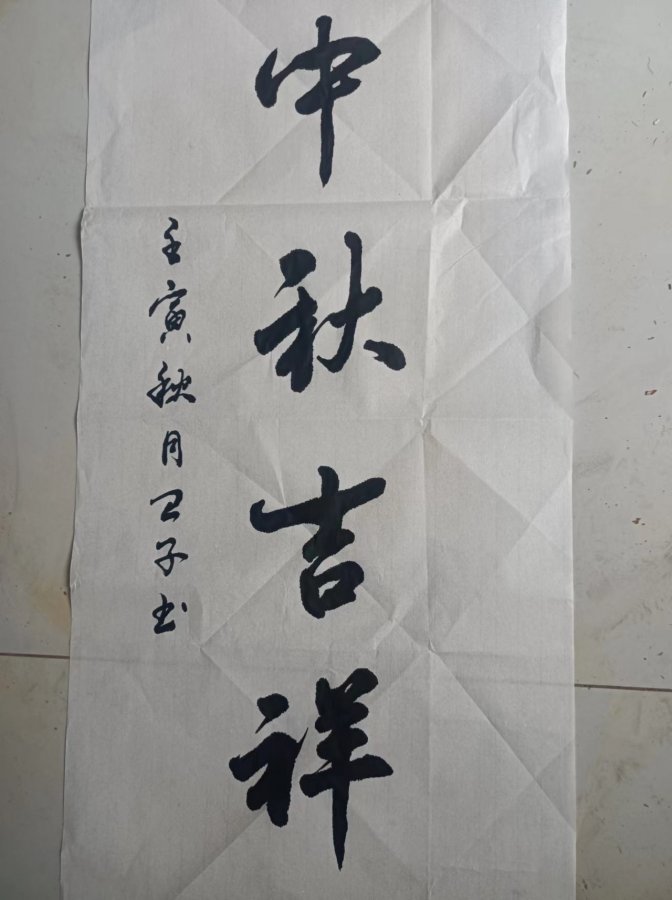 中秋吉祥
壬寅秋月卫子书